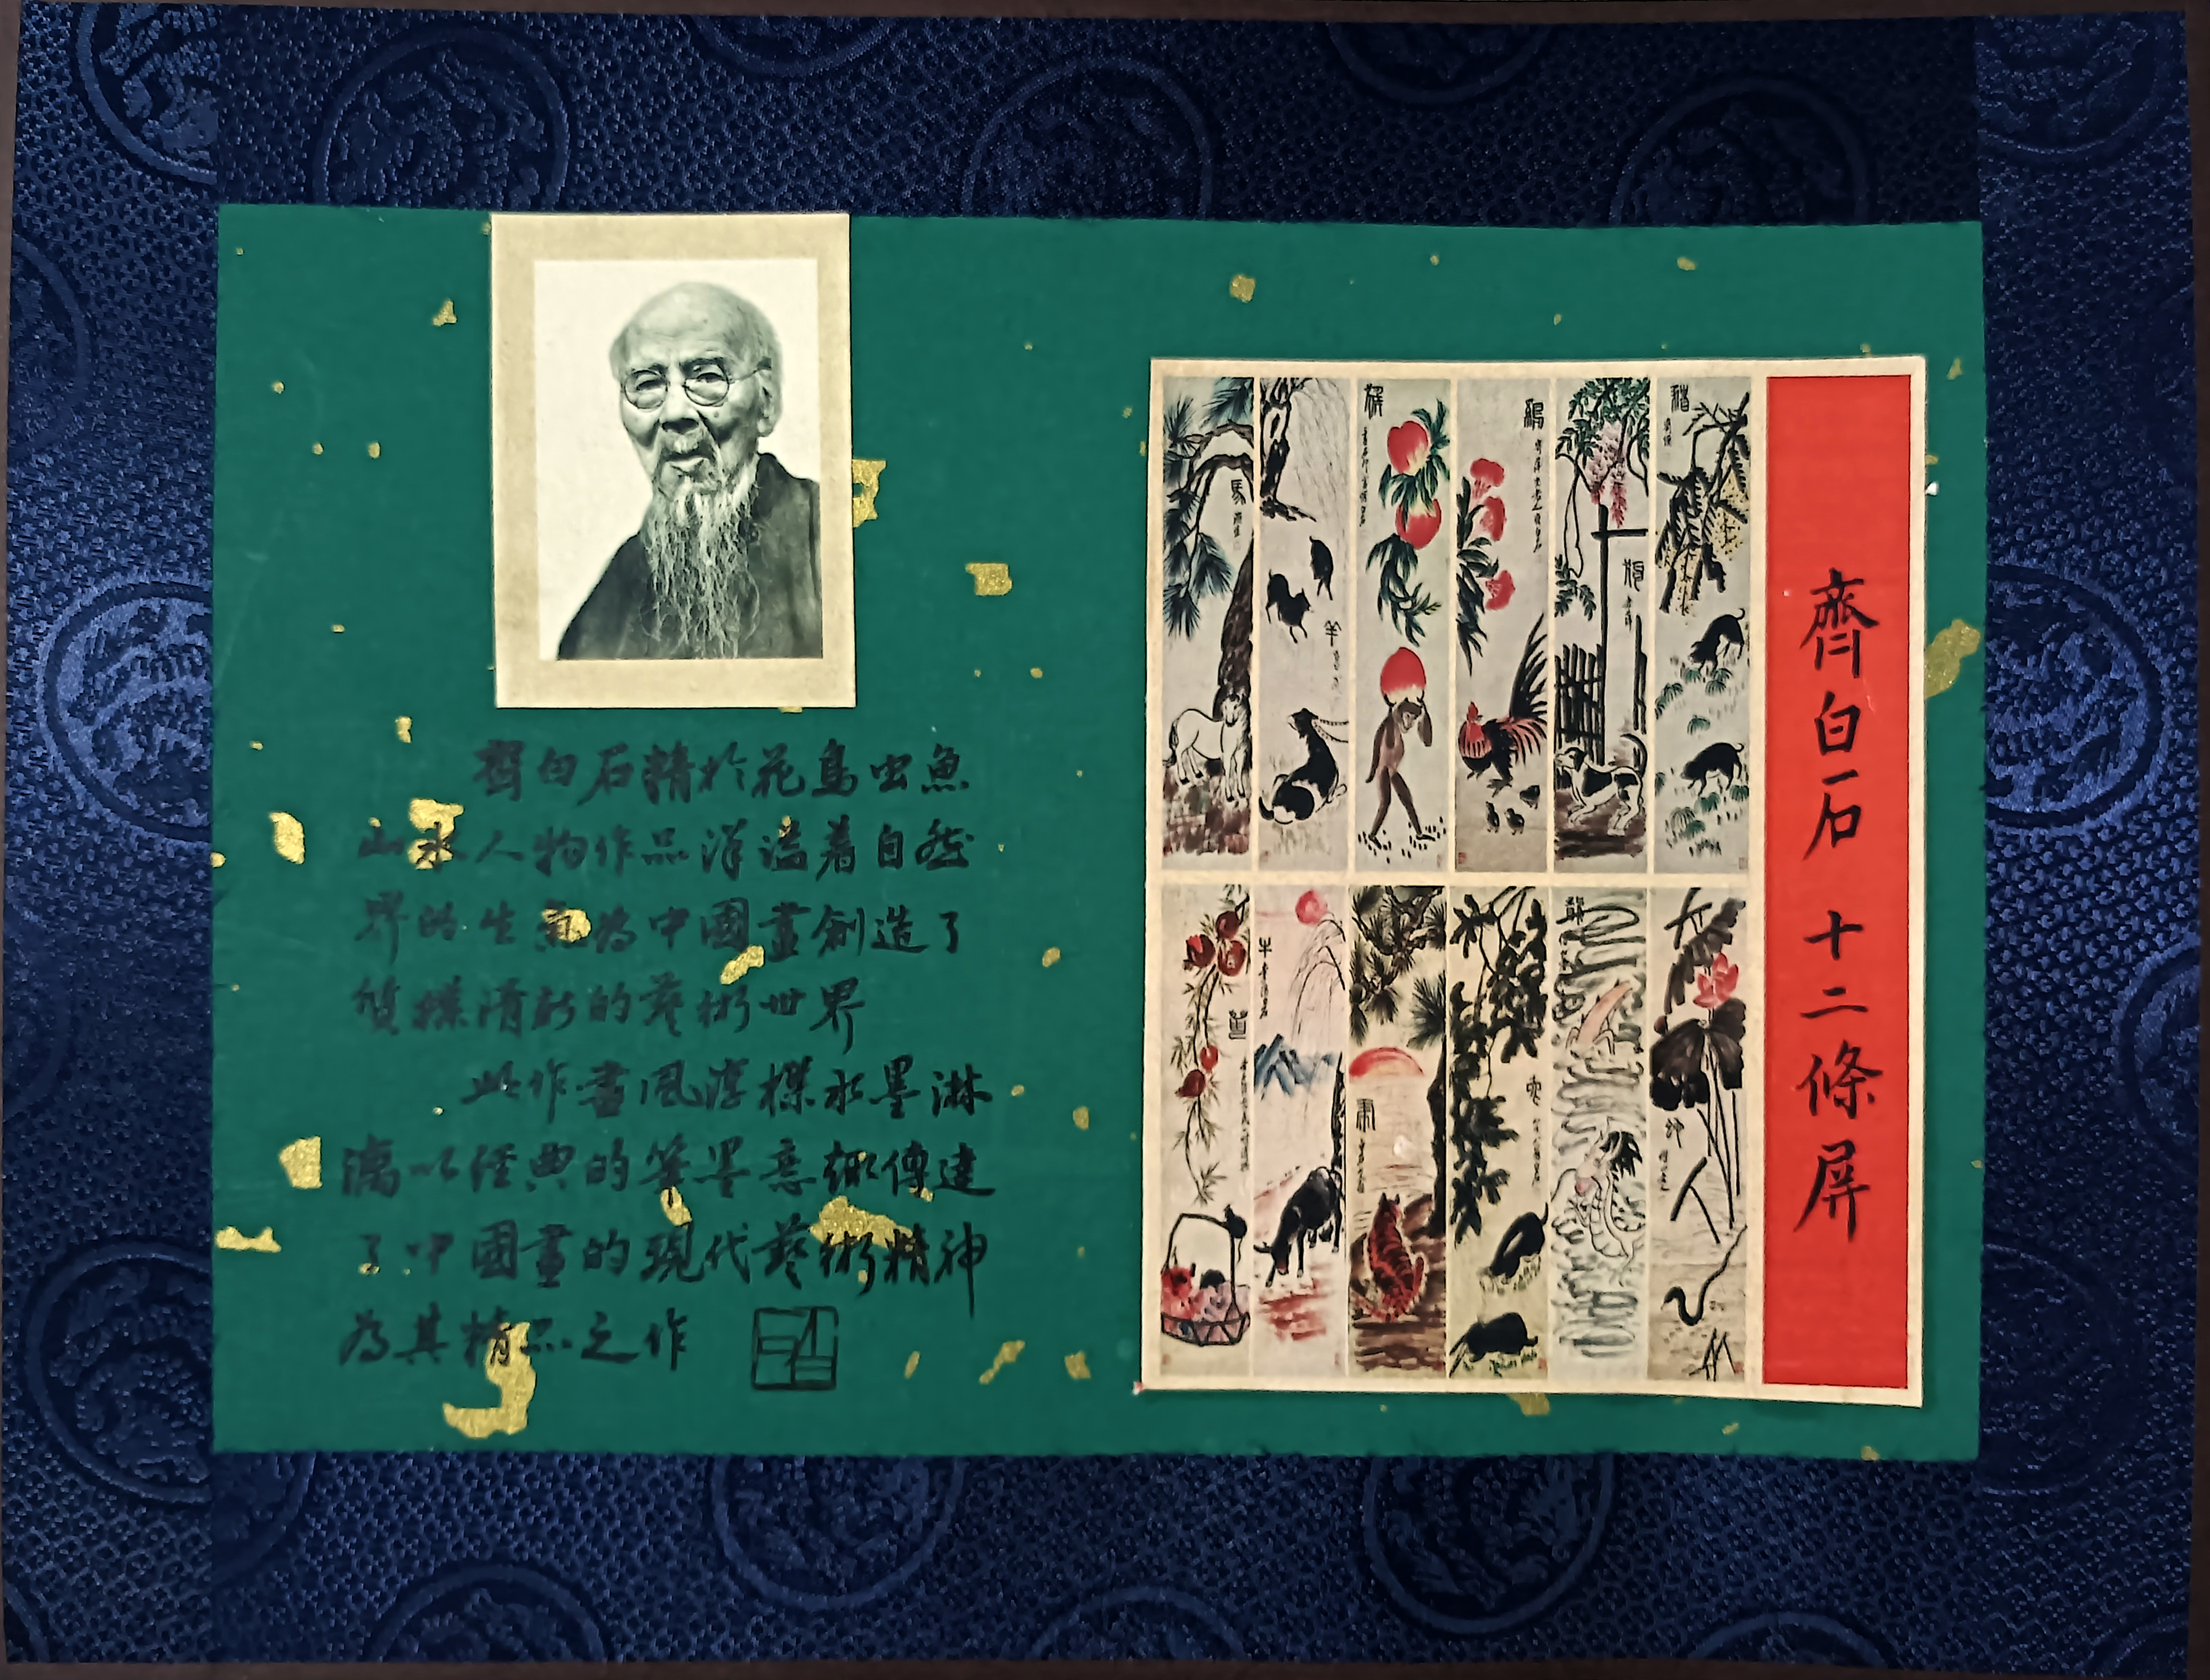 齊白石精於花鳥虫魚
山水人物作品洋溢着自然
界的生氣為中國畫創造了
質樸清新的藝術世界
此作畫風淳樸水墨淋
漓以經典的筆墨意趣傳達
了中國畫的現代藝術精神
為其精品之作
齊白石 十二條屏
馬
羊
猴
鷄
狗
豬
牛
虎
龍